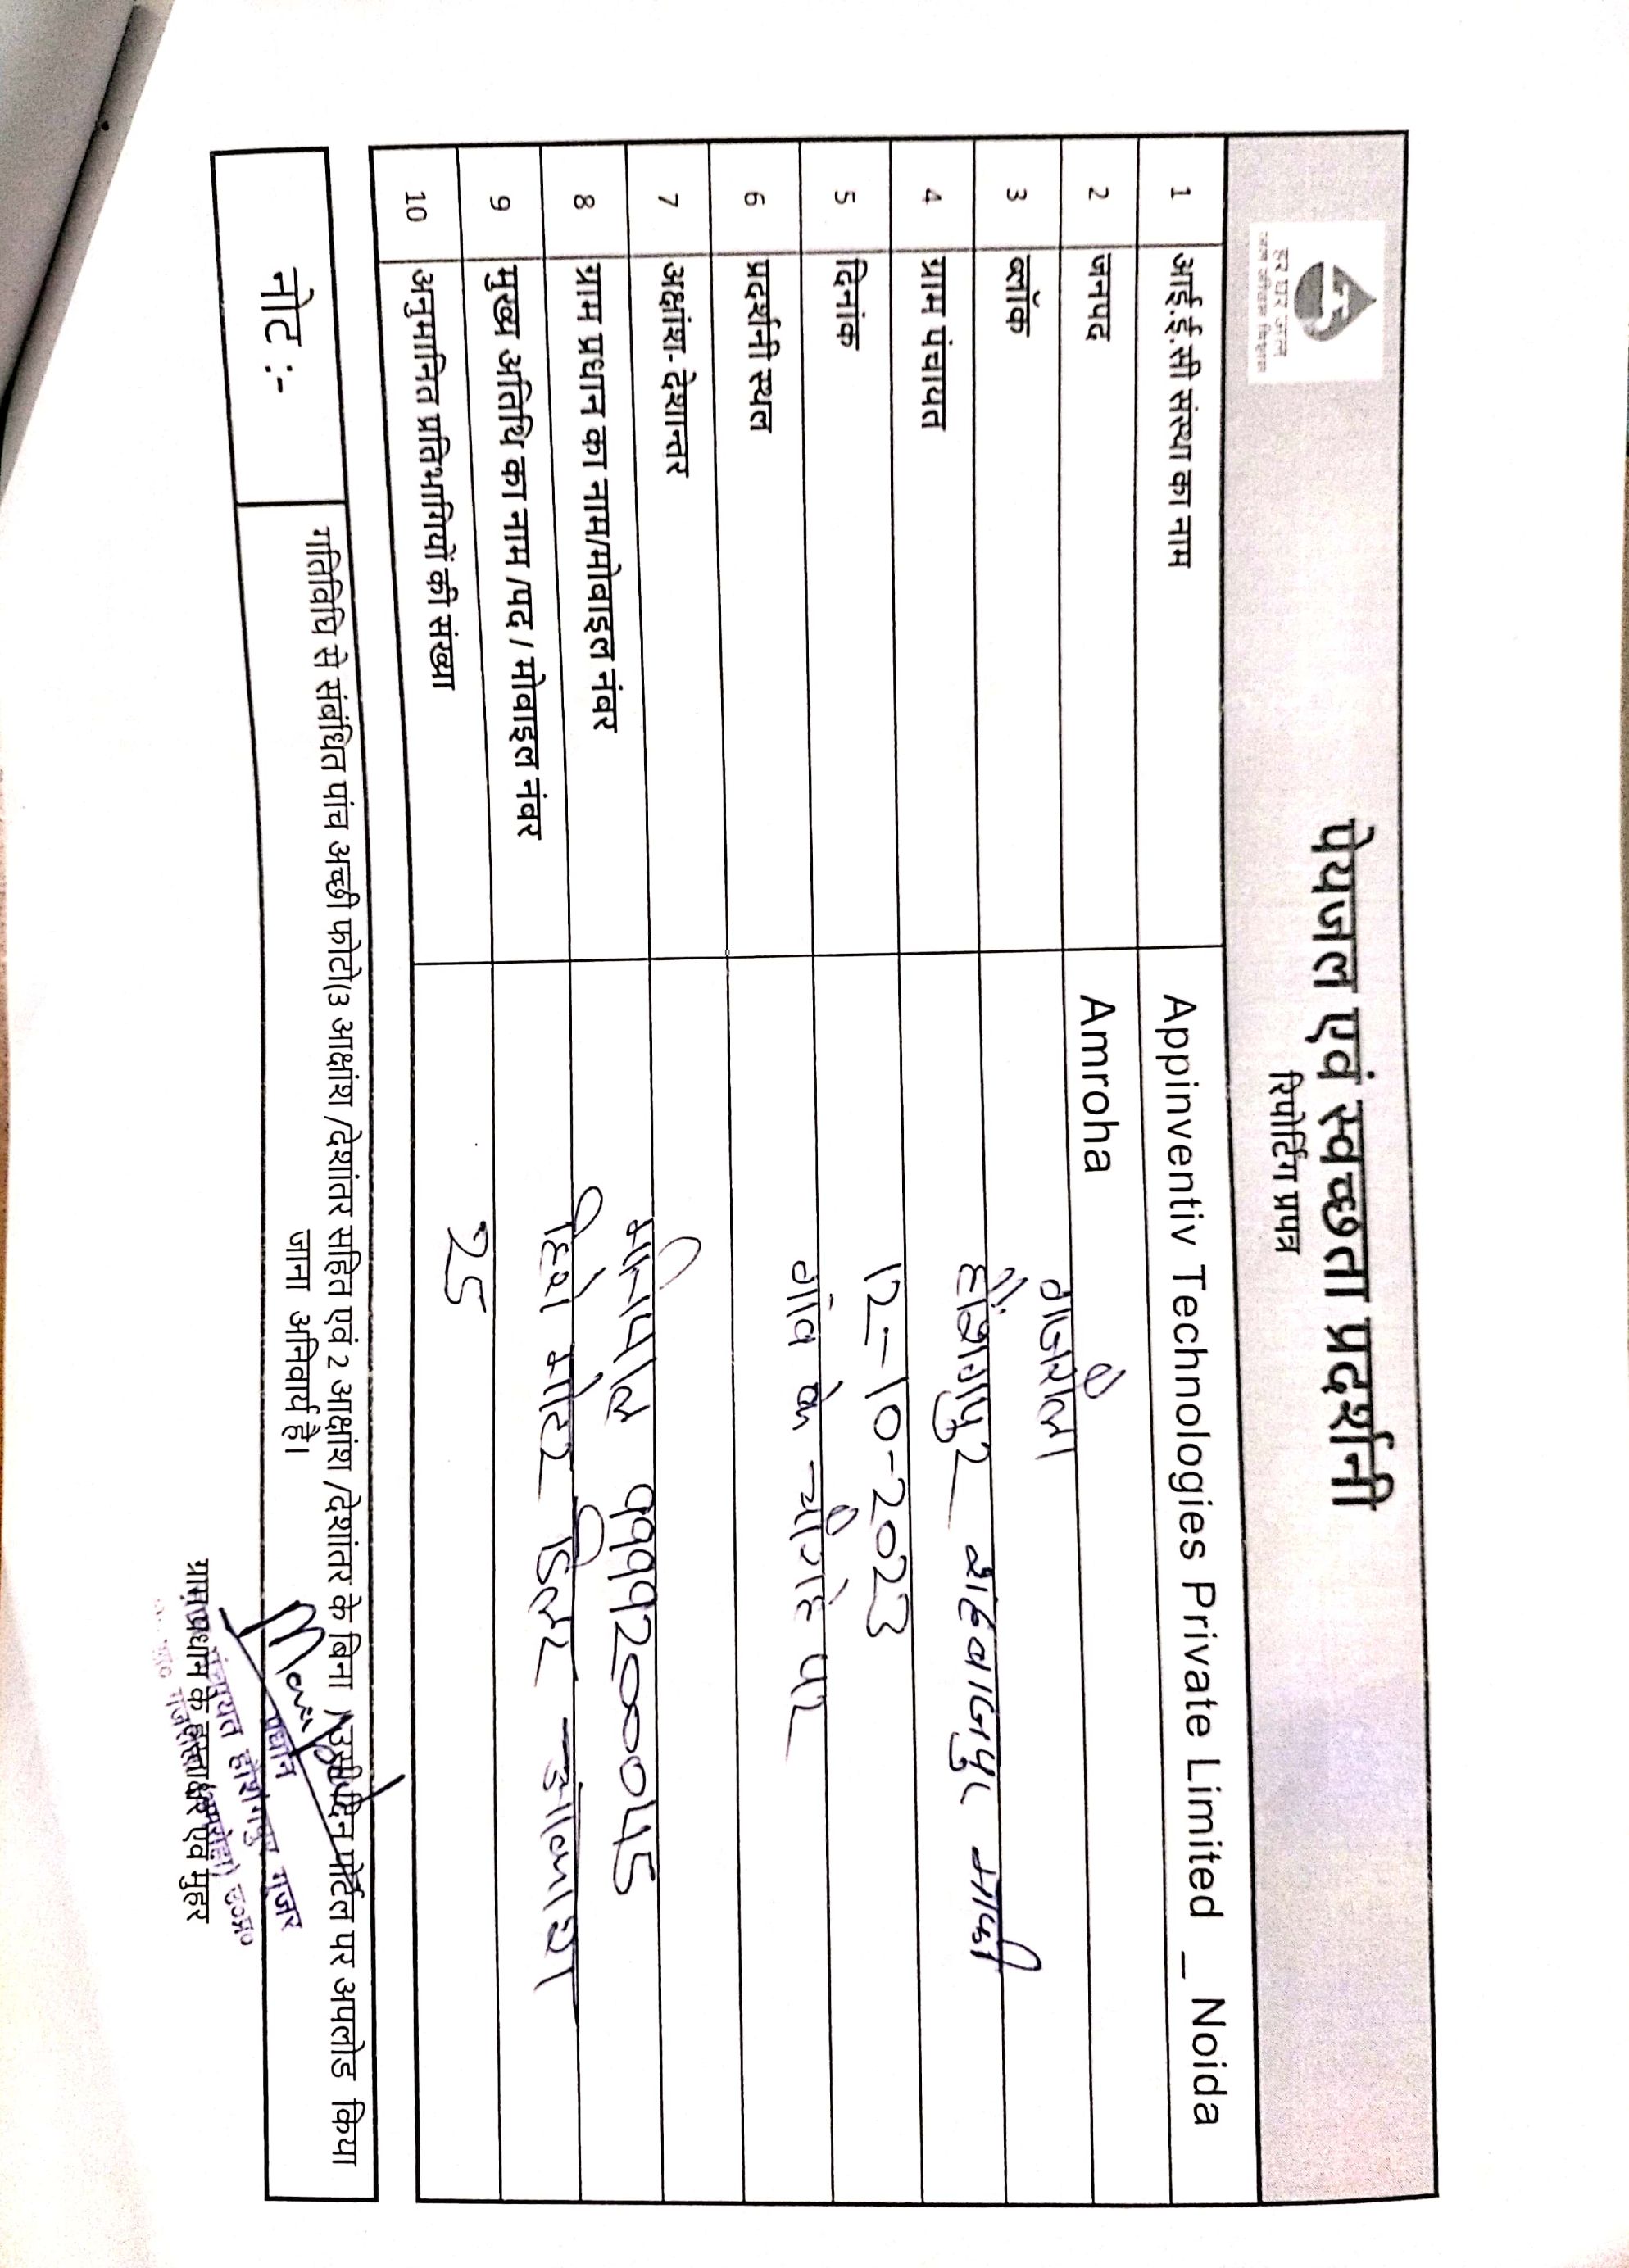 हर घर जल
जल जीवन मिशन
पेयजल एवं स्वच्छता प्रदर्शनी
रिपोर्टिंग प्रपत्र
1 आई.ई.सी संस्था का नाम Appinventiv Technologies Private Limited _ Noida
2 जनपद Amroha
3 ब्लॉक गजरौला
4 ग्राम पंचायत शहबाजपुर माफी
5 दिनांक 12-10-2023
6 प्रदर्शनी स्थल गांव के चौराहे पर
7 अक्षांश-देशान्तर
8 ग्राम प्रधान का नाम/मोबाइल नंबर 9999200045
9 मुख्य अतिथि का नाम /पद / मोबाइल नंबर
10 अनुमानित प्रतिभागियों की संख्या 25
नोट :-
गतिविधि से संबंधित पांच अच्छी फोटो(3 आक्षांश /देशांतर सहित एवं 2 आक्षांश /देशांतर के बिना ) उसी दिन पोर्टल पर अपलोड किया
जाना अनिवार्य है।
प्रधान
पंचायत होशंगपुर गूजर
ग्राम प्रधान के हस्ताक्षर एवं मुहर